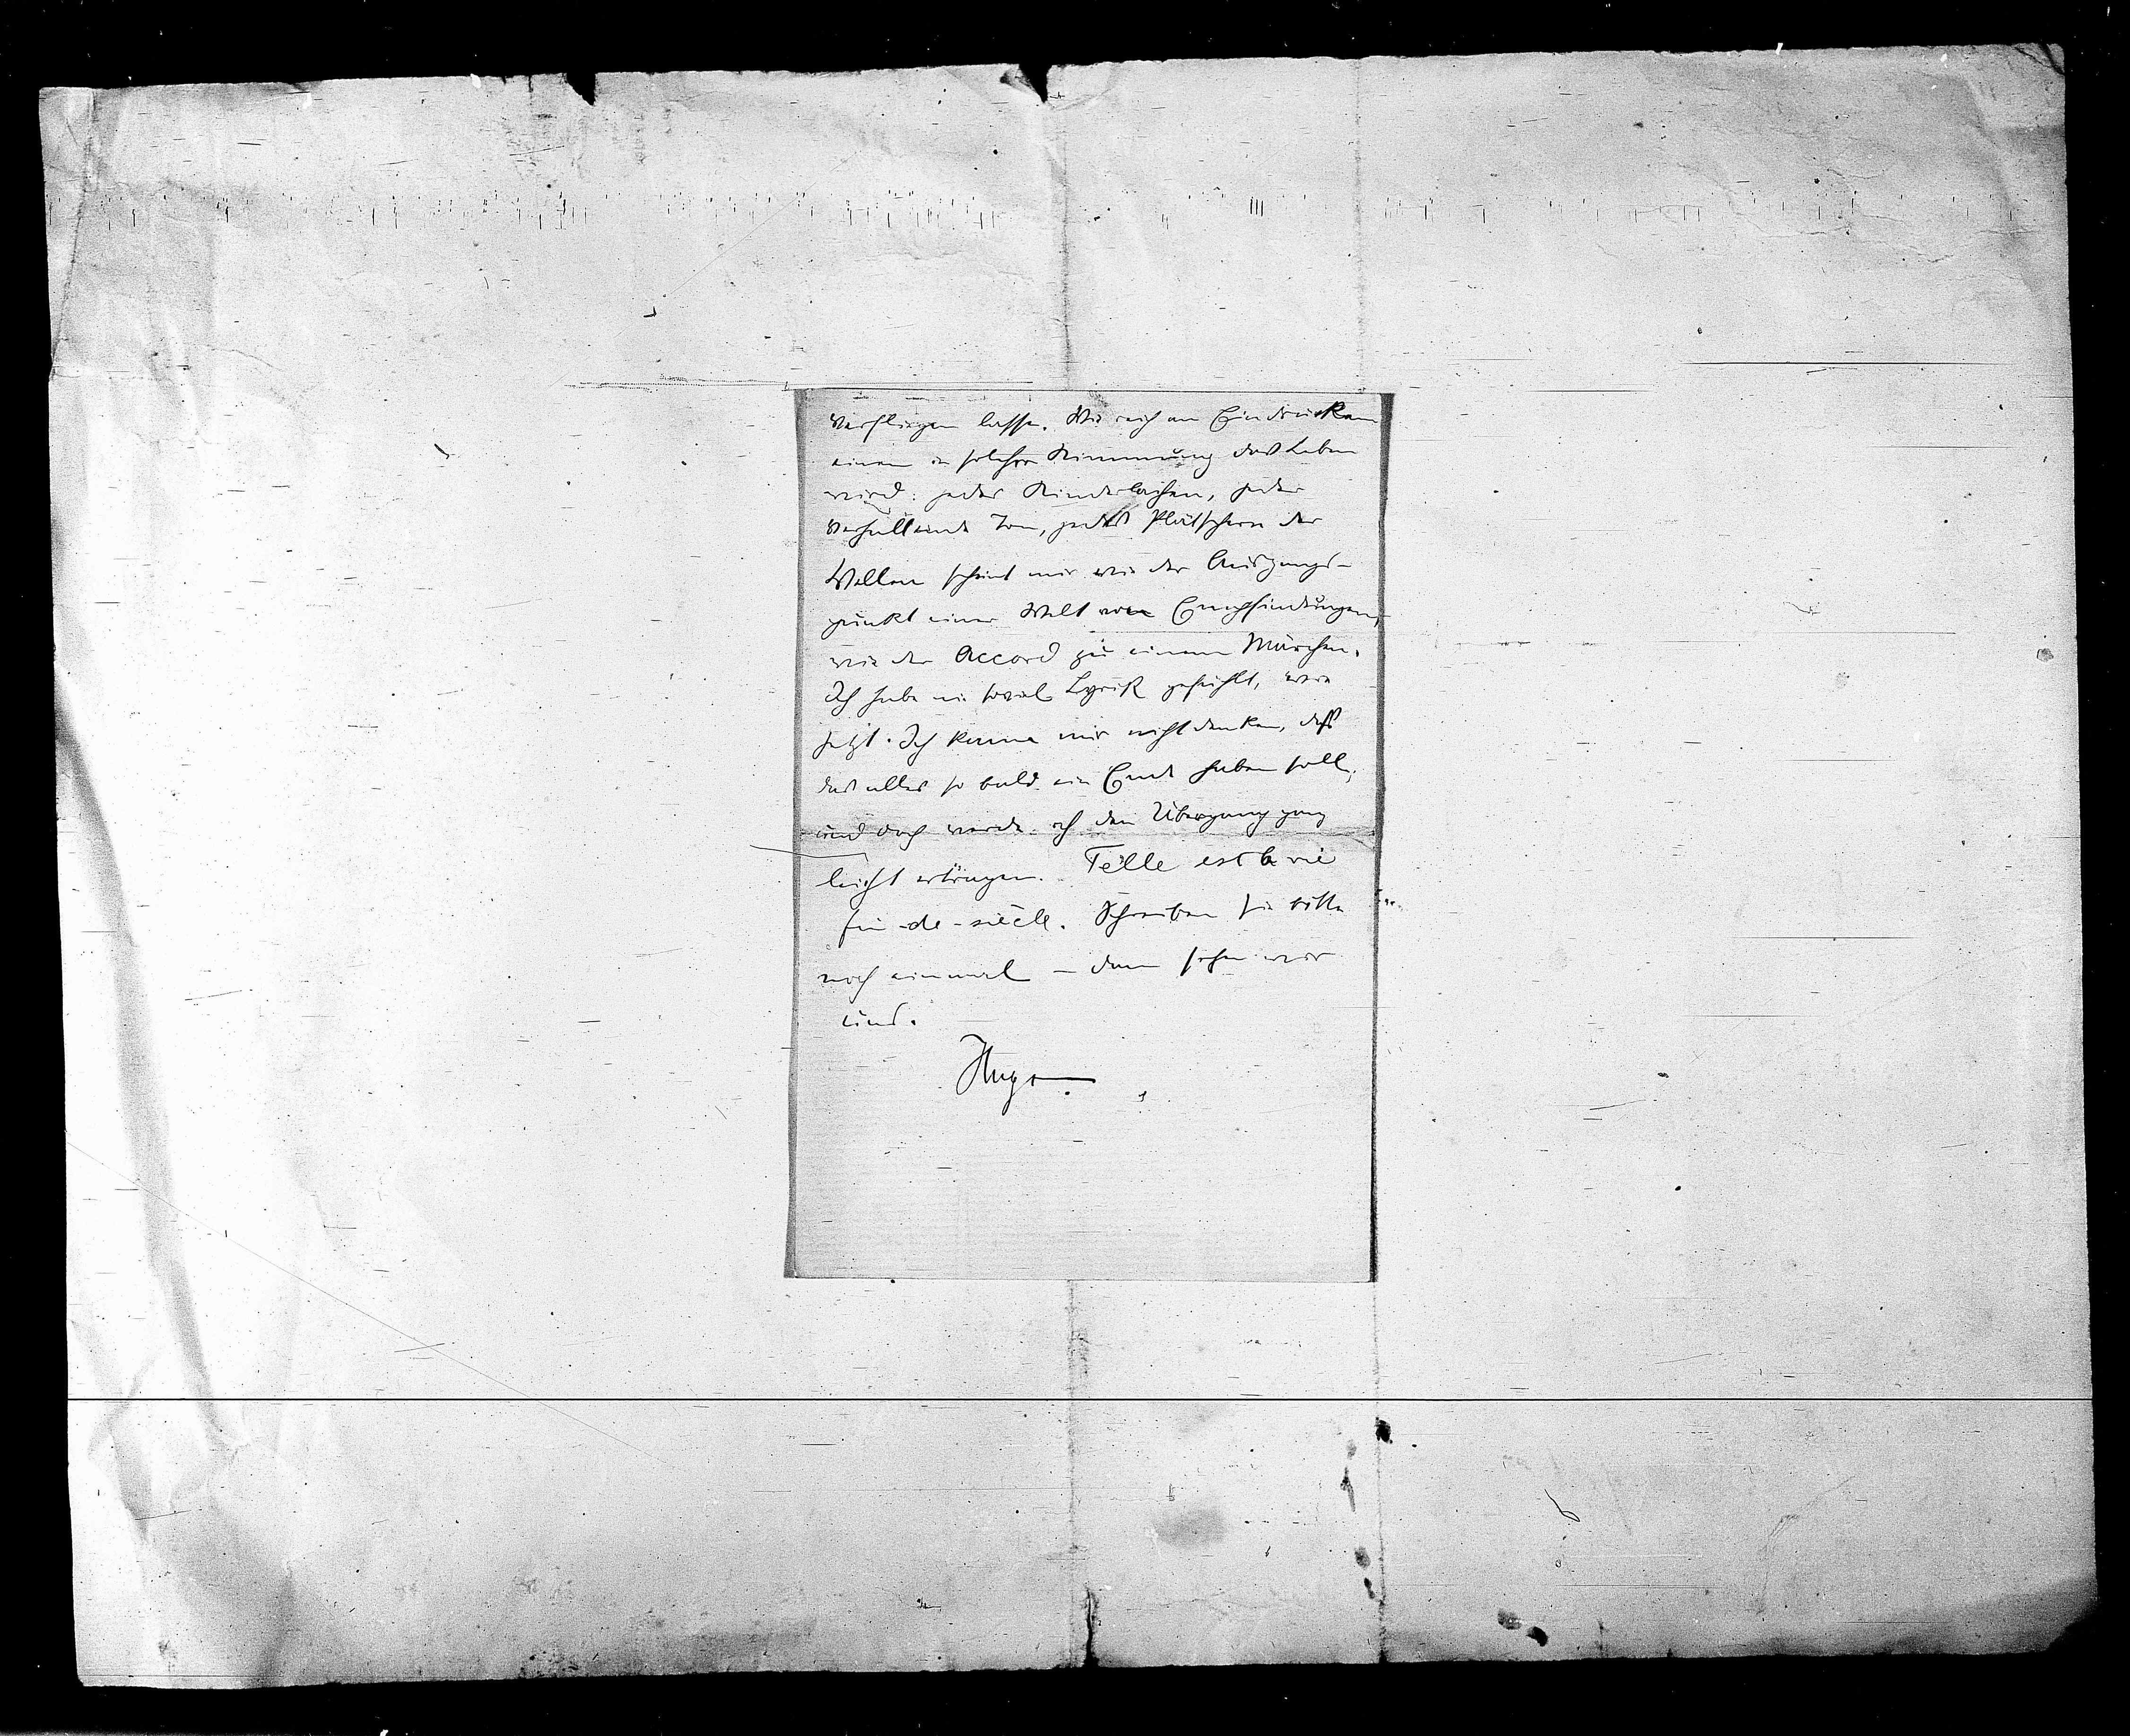 verfliegen lasse. Wie reich an Eindrücken
einem in solcher Stimmung das Leben
wird: jedes Kinderlachen, jeder
verhallende Ton, jedes Plätschern der
Wellen scheint mir wie der Ausgangs-
punkt einer Welt von Empfindungen,
wie der Accord zu einem Märchen.
Ich habe nie soviel Lyrik gefühlt, wie
jetzt. Ich kann mir nicht denken, daß
das alles so bald ein Ende haben soll,
und doch werde ich den Übergang ganz
leicht ertragen. Telle est la vie
fin-de-siècle. Schreiben Sie bitte
noch einmal – dann sehen wir
uns.
Hugo